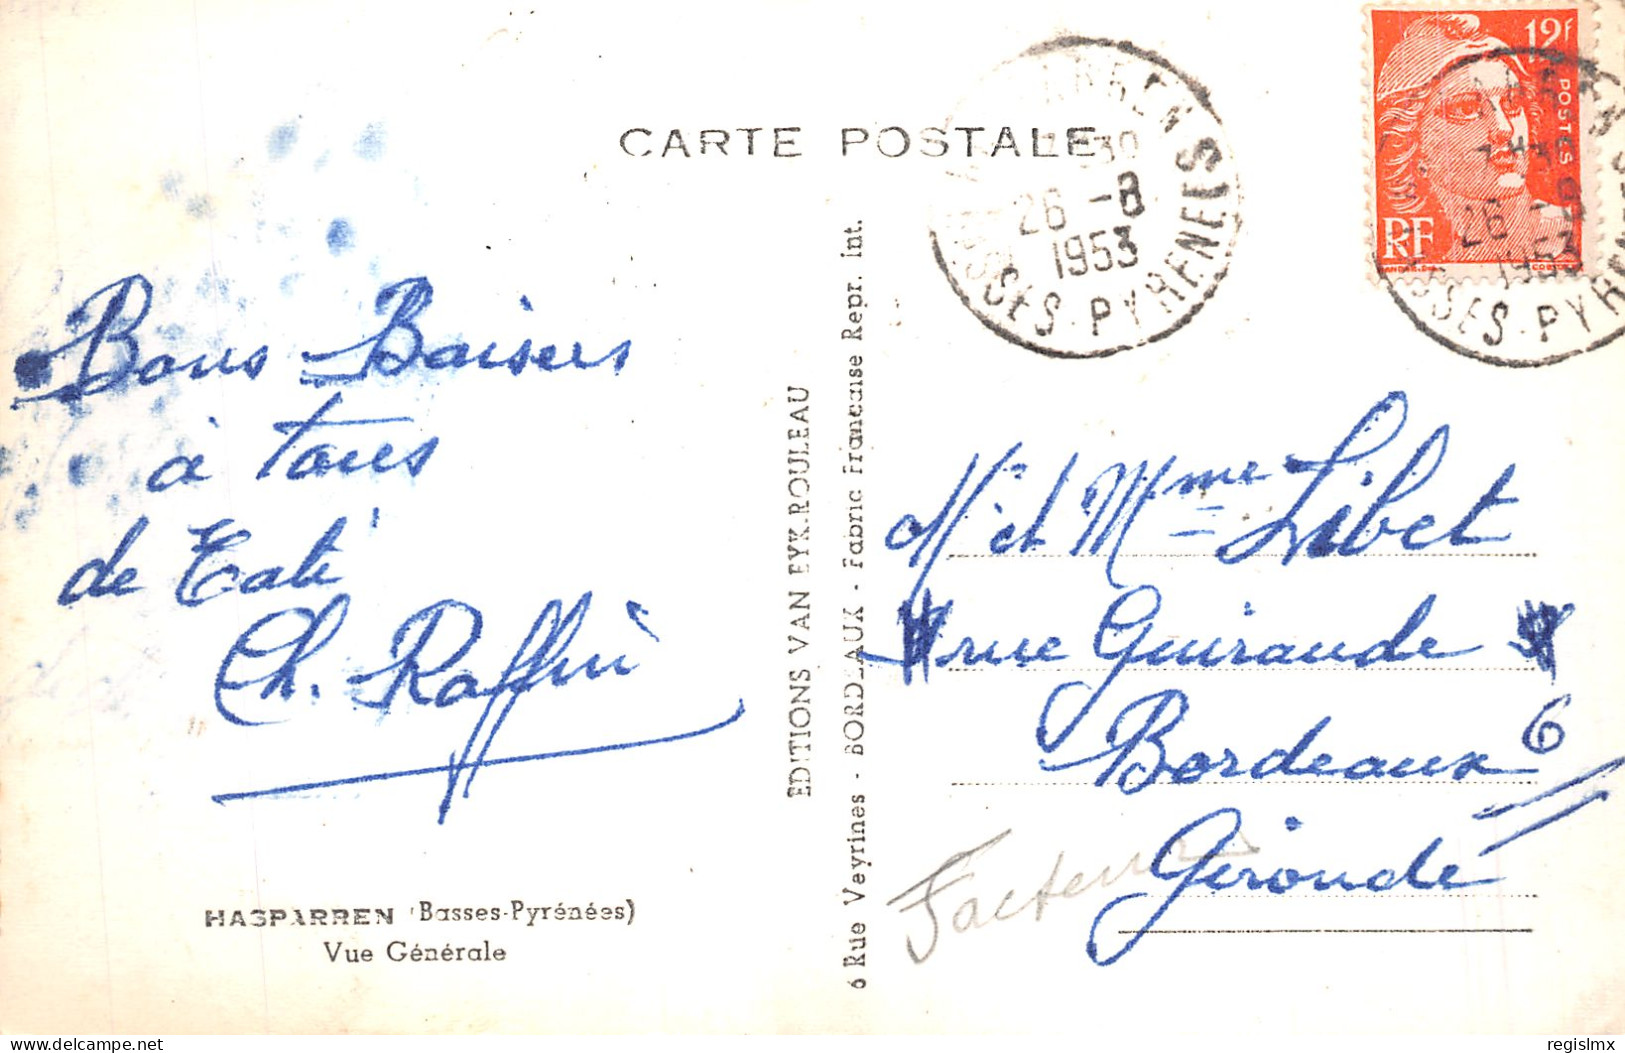 CARTE POSTALE
12f
POSTES
RF
26 -8
1953
BASSES-PYRENEES
26 -8
1953
Bons Baisers
à tous
de Tati
Ch. Raffin
HASPARREN (Basses-Pyrénées)
Vue Générale
EDITIONS VAN EYK.ROULEAU
6 Rue Veyrines - BORDEAUX - Fabric Francaise Repr. Int.
Mr et Mme Libet
rue Guiraude
Bordeaux 6
Gironde
Facteur
delcampe.net
regislmx